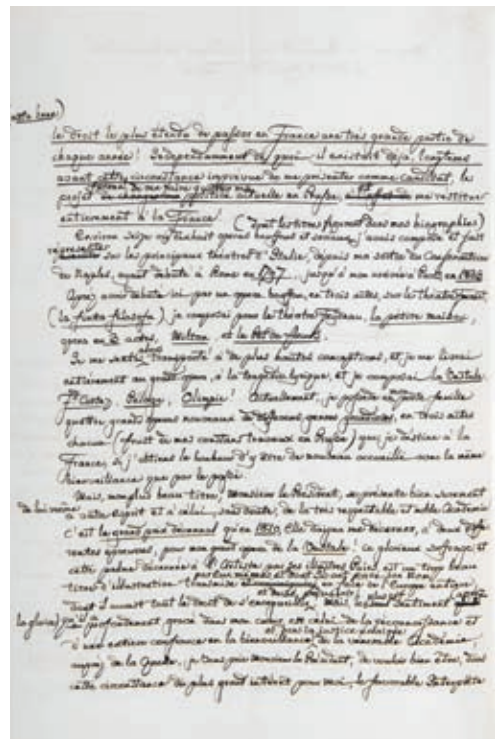 le droit le plus étendu de passer en France une très grande partie de
chaque année! Indépendamment de quoi il existait déja, longtems
avant cette circonstance imprévue de me présenter comme candidat, le
projet de me faire quitter ma position actuelle en Prusse, et de me restituer
entièrement à la France. (dont les titres figurent dans mes biographies)
Environ seize opéras bouffons et sérieux, j'avais composés et fait
représenter sur les principaux théatres d'Italie, depuis ma sortie du Conservatoire
de Naples, ayant débuté à Rome en jusqu'à mon arrivée à Paris en
Après avoir débuté ici par un opera bouffon, en trois actes, sur le théatre
(la finta filosofa) je composai pour le théatre Feydeau, la petite maison,
opera en 3 actes, Milton et le Pot de fleurs.
Je me sentis transporté à de plus hautes conceptions, et je me livrai
entièrement au grand opera, à la tragédie lyrique, et je composai la Vestale
Fd. Cortez, Pelage, Olimpie! Actuellement, je possède en porte feuille
quatre grands opéras nouveaux de différens genres, en trois actes
chacun (fruit de mes constans travaux en Prusse) que je destine à la
France, si j'obtiens le bonheur d'y être de nouveau accueilli avec la même
bienveillance que par le passé.
Mais, mon plus beau titre, Monsieur le Président, se présente bien surement
de lui même à votre esprit et à celui, sans doute, de la très respectable et noble Académie
c'est le grand prix décennal qu'en 1810 Elle daigna me décerner, à deux diffé-
rentes épreuves, pour mon grand opera de la Vestale: ce glorieux suffrage et
cette palme décernée à l'Artiste par ses illustres Pairs est un trop beau
titre d'illustration
dont il aurait tout le droit de s'enorgueillir, Mais, le seul sentiment
(la gloire) profondément gravé dans mon cœur, est celui de la reconnaissance et
d'une entière confiance en la bienveillance de la vénérable Académie,
je vous prie Monsieur le Président, de vouloir bien être, dans
cette circonstance du plus grand intérêt pour moi, le favorable Interprète